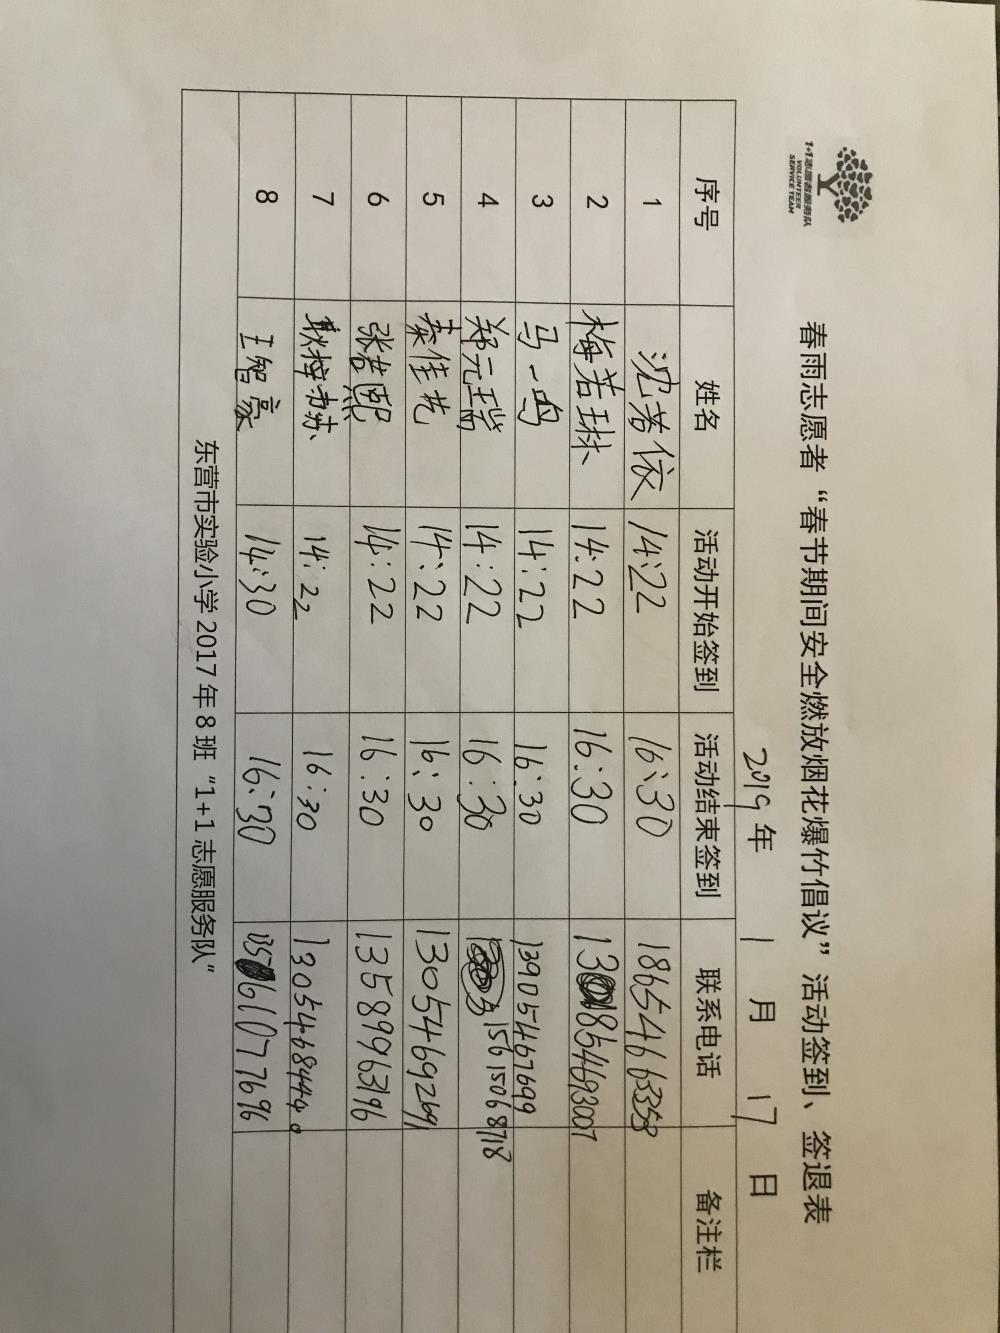 1+1志愿者服务队
VOLUNTEER
SERVICE TEAM
春雨志愿者“春节期间安全燃放烟花爆竹倡议”活动签到、签退表
2019年 1 月 17 日
序号 姓名 活动开始签到 活动结束签到 联系电话 备注栏
1 沈若依 14:22 16:30 18654663358
2 梅若琳 14:22 16:30 18854693007
3 马一鸣 14:22 16:30 13905467699
4 郑元瑞 14:22 16:30 15615068718
5 秦佳艺 14:22 16:30 13054692691
6 张若熙 14:22 16:30 13589963196
7 14:22 16:30 13054684440
8 王智豪 14:30 16:30
东营市实验小学2017年8班“1+1志愿服务队”